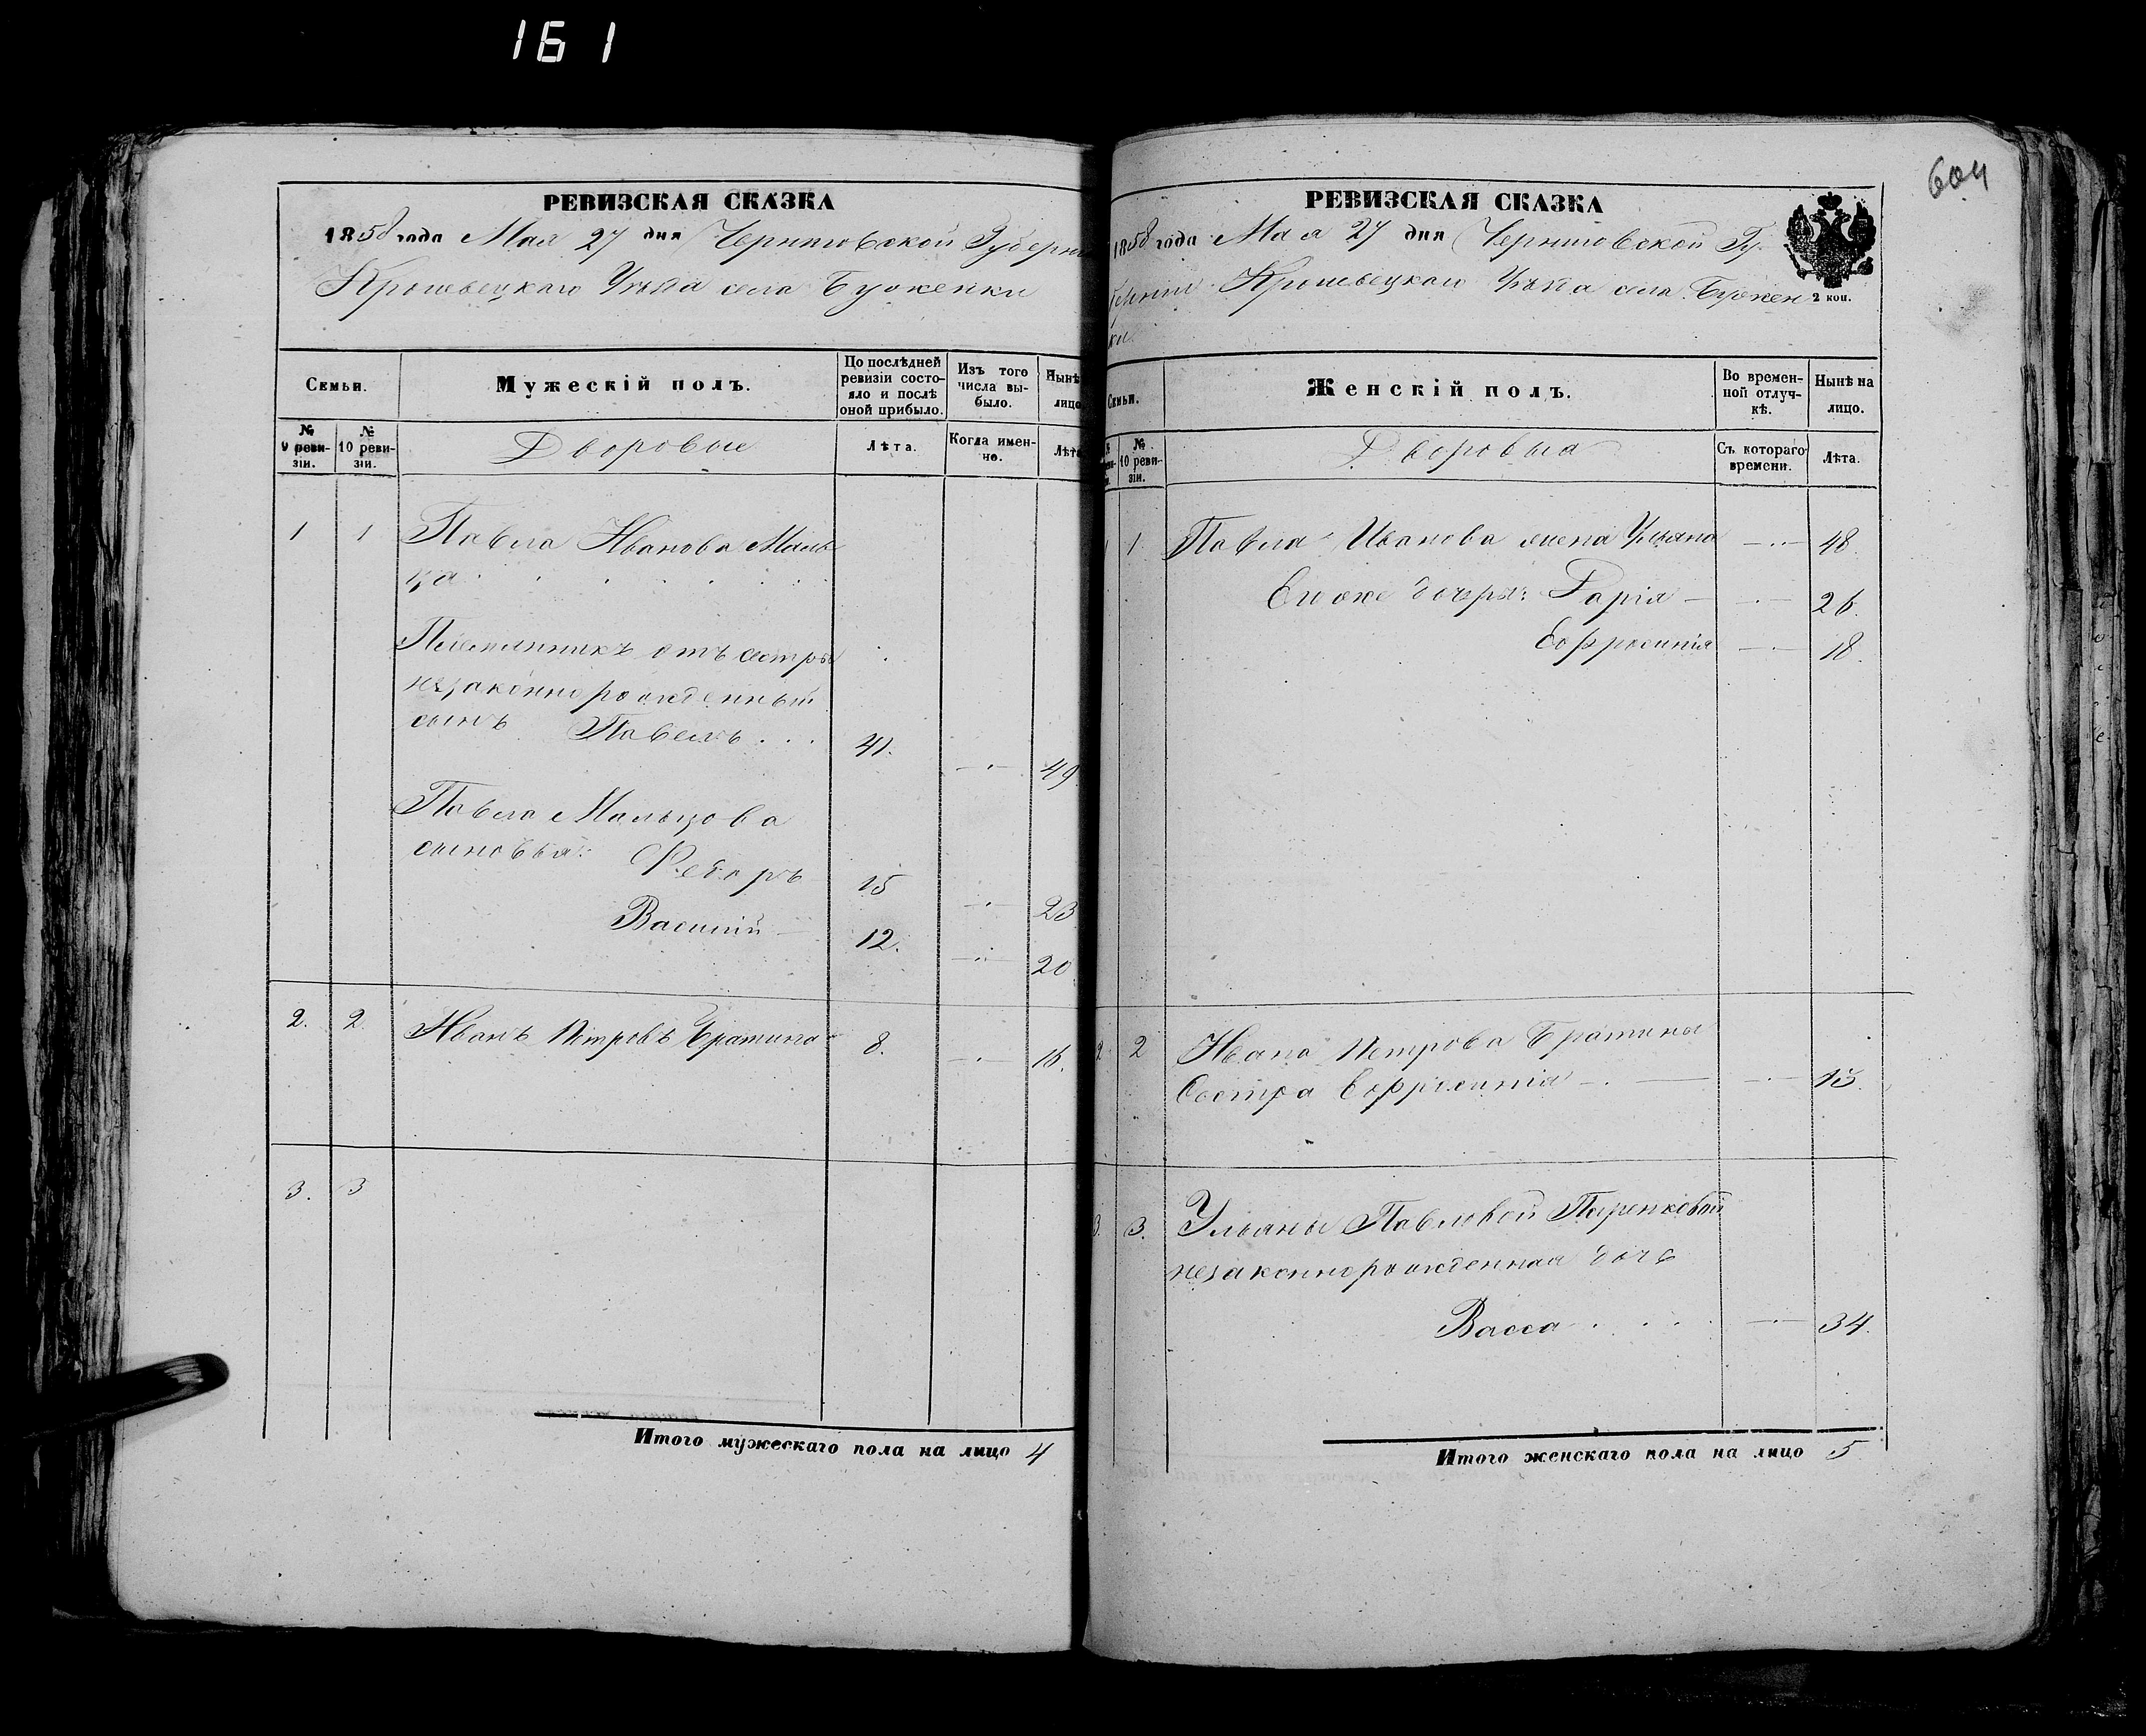 161
РЕВИЗСКАЯ СКАЗКА
1858 года Мая 27 дня Черниговской Губерни
Кролевецкаго Уѣзда села
Семьи.
Мужескій полъ.
По послѣдней ревизіи состояло и послѣ оной прибыло.
Изъ того числа выбыло.
Нынѣ
лицо
№ 9 ревизіи.
№ 10 ревизіи.
Дворовые
Лѣта.
Когда именно.
Лѣта
1 1 Павла Иванова Маль
ца
Племянникъ отъ сестры
незаконнорожденный
сынъ Павелъ . . . 41. 49
Павла Мальцова
сыновья: Федоръ 15 23
Василій 12. 20
2. 2. Иванъ Петровъ Братина 8. 16.
3. 3
Итого мужескаго пола на лицо 4
604
РЕВИЗСКАЯ СКАЗКА
1858 года Мая 27 дня Черниговской Гу-
берніи Кролевецкаго Уѣзда села
ки.
2 коп.
Семьи.
Женскій полъ.
Во временной отлучкѣ.
Нынѣ на лицо.
№ 10 ревизіи.
Дворовыя
Съ котораго времени.
Лѣта.
1 1 Павла Иванова жена Ульяна 48.
Его же дочери: Дарія 26.
Ефросинія 18.
2. 2 Ивана Петрова Братины
Сестра Ефросинія 15.
3. 3. Ульяны Павловой
незаконнорожденная дочь
Васса 34.
Итого женскаго пола на лицо 5